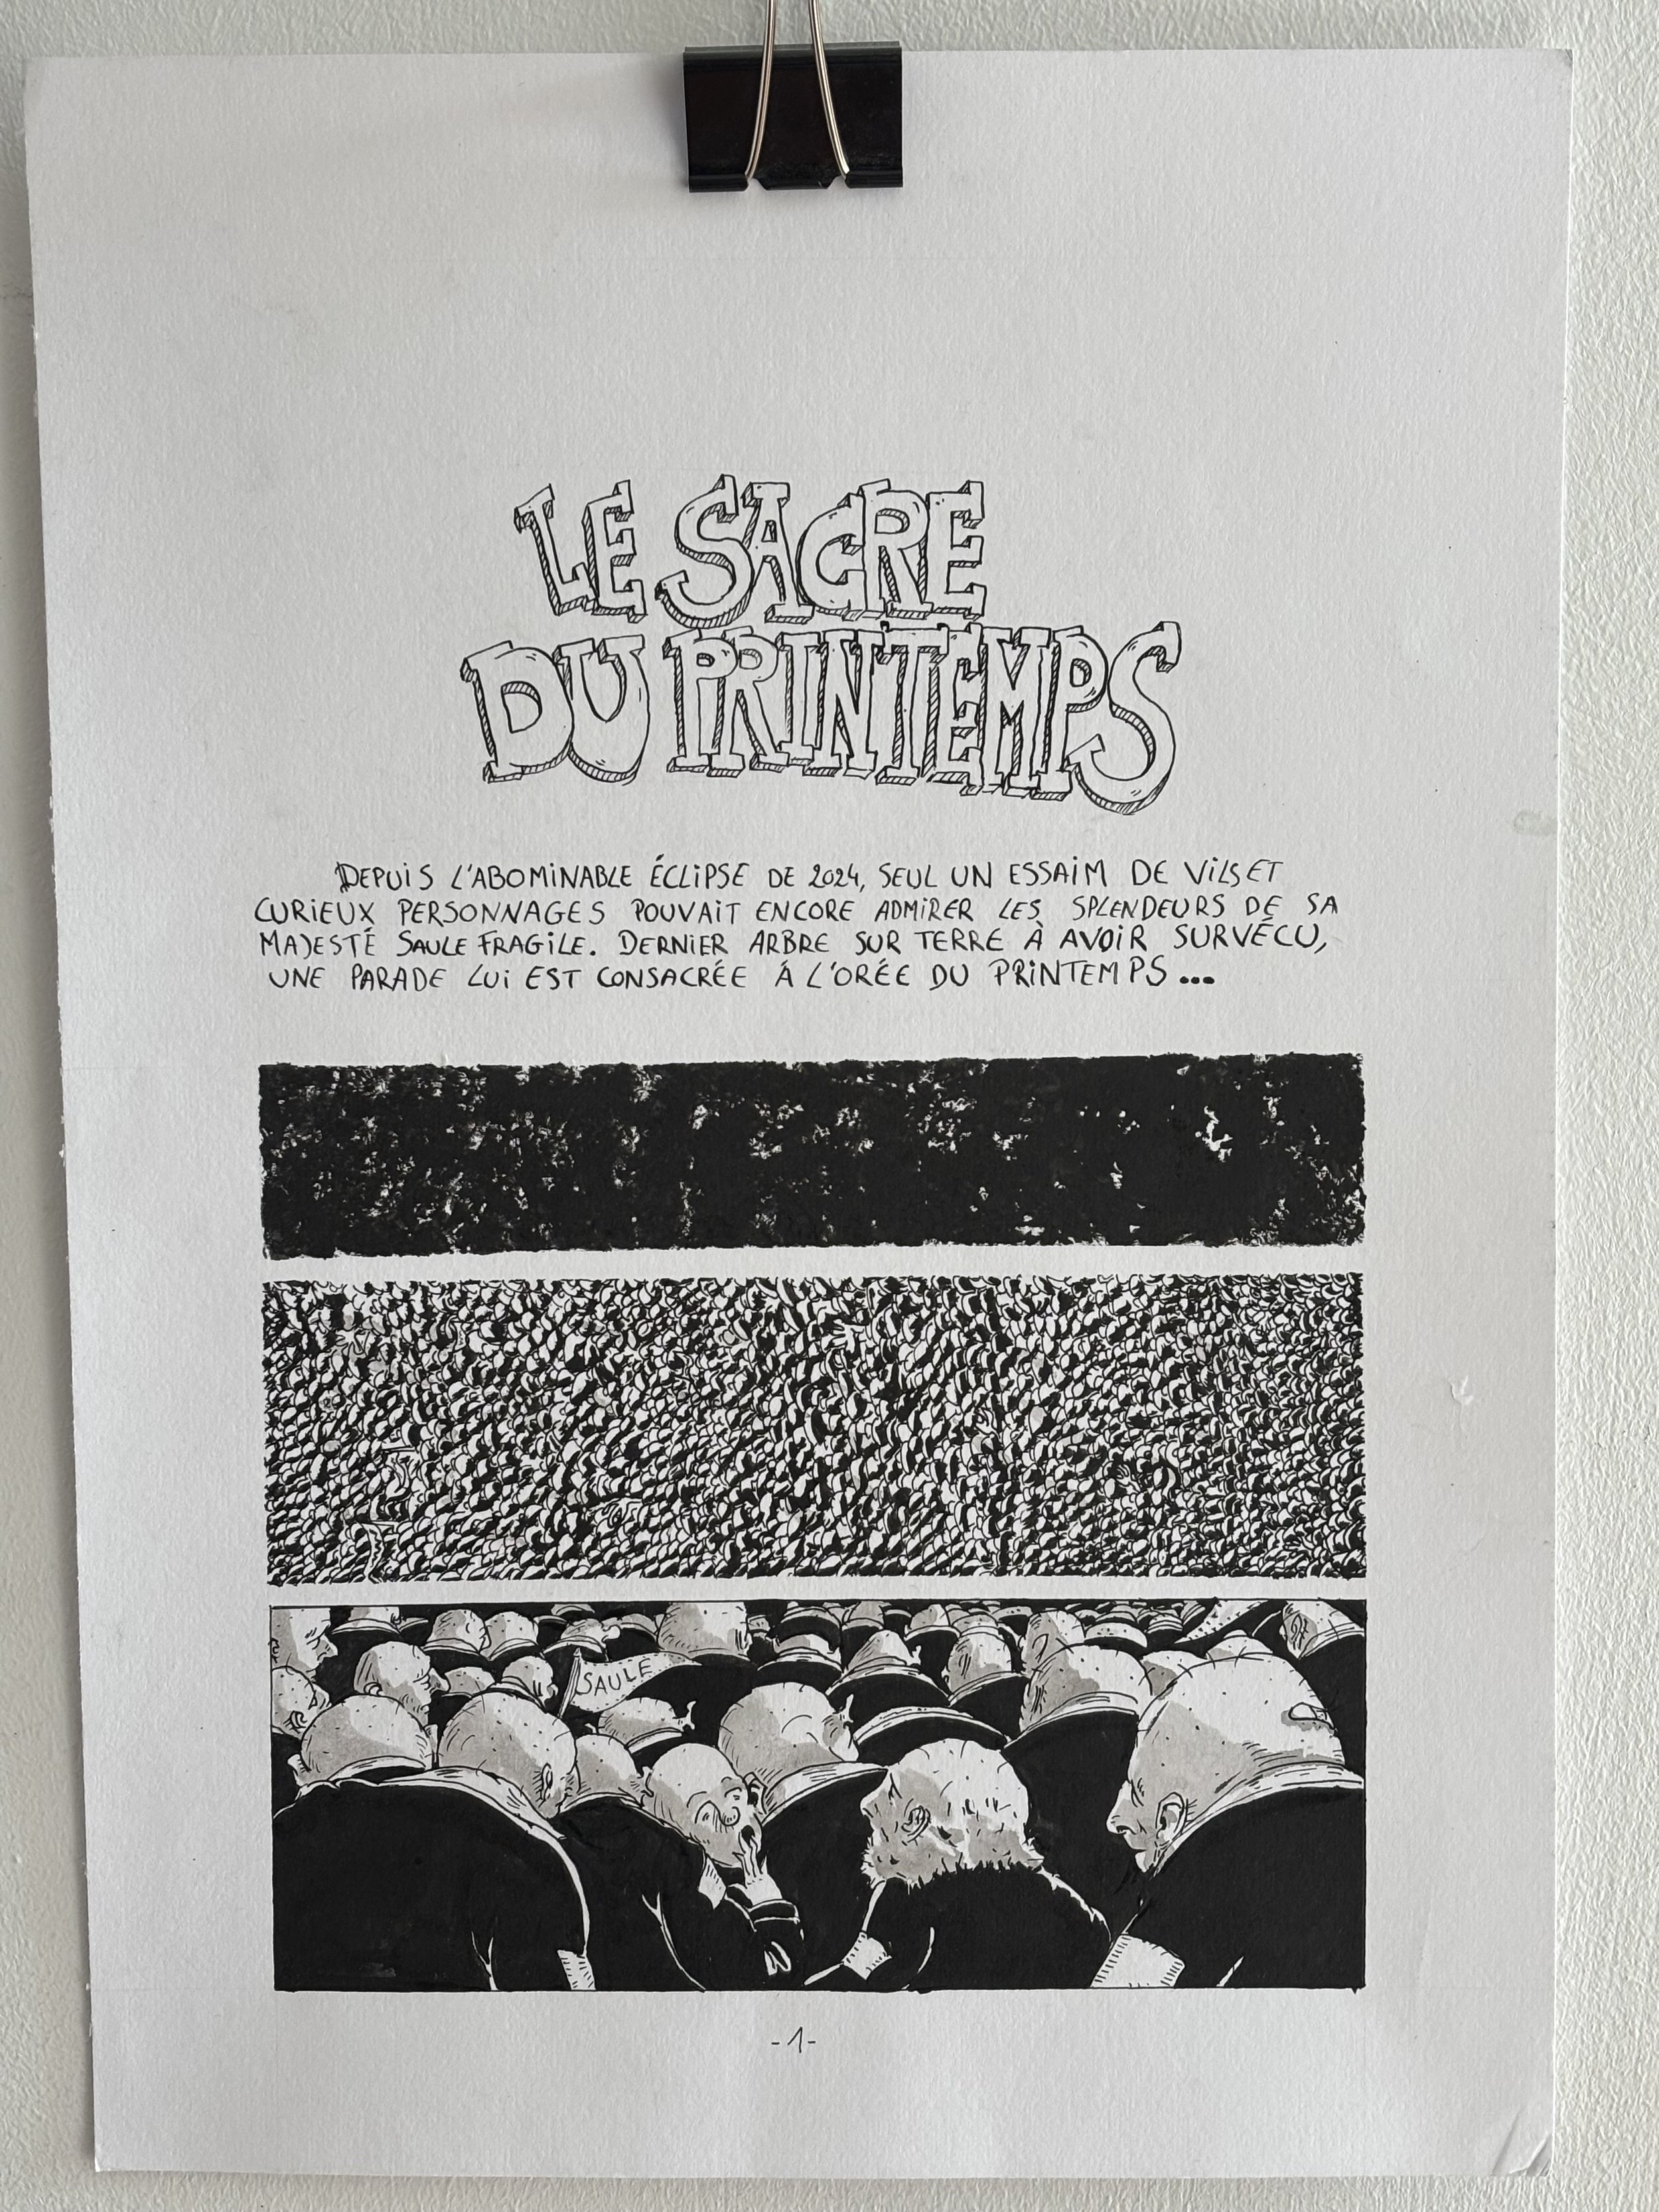 LE SACRE
DU PRINTEMPS
DEPUIS L'ABOMINABLE ÉCLIPSE DE 2024, SEUL UN ESSAIM DE VILS ET
CURIEUX PERSONNAGES POUVAIT ENCORE ADMIRER LES SPLENDEURS DE SA
MAJESTÉ SAULE FRAGILE. DERNIER ARBRE SUR TERRE À AVOIR SURVÉCU,
UNE PARADE LUI EST CONSACRÉE À L'ORÉE DU PRINTEMPS...
SAULE
-1-